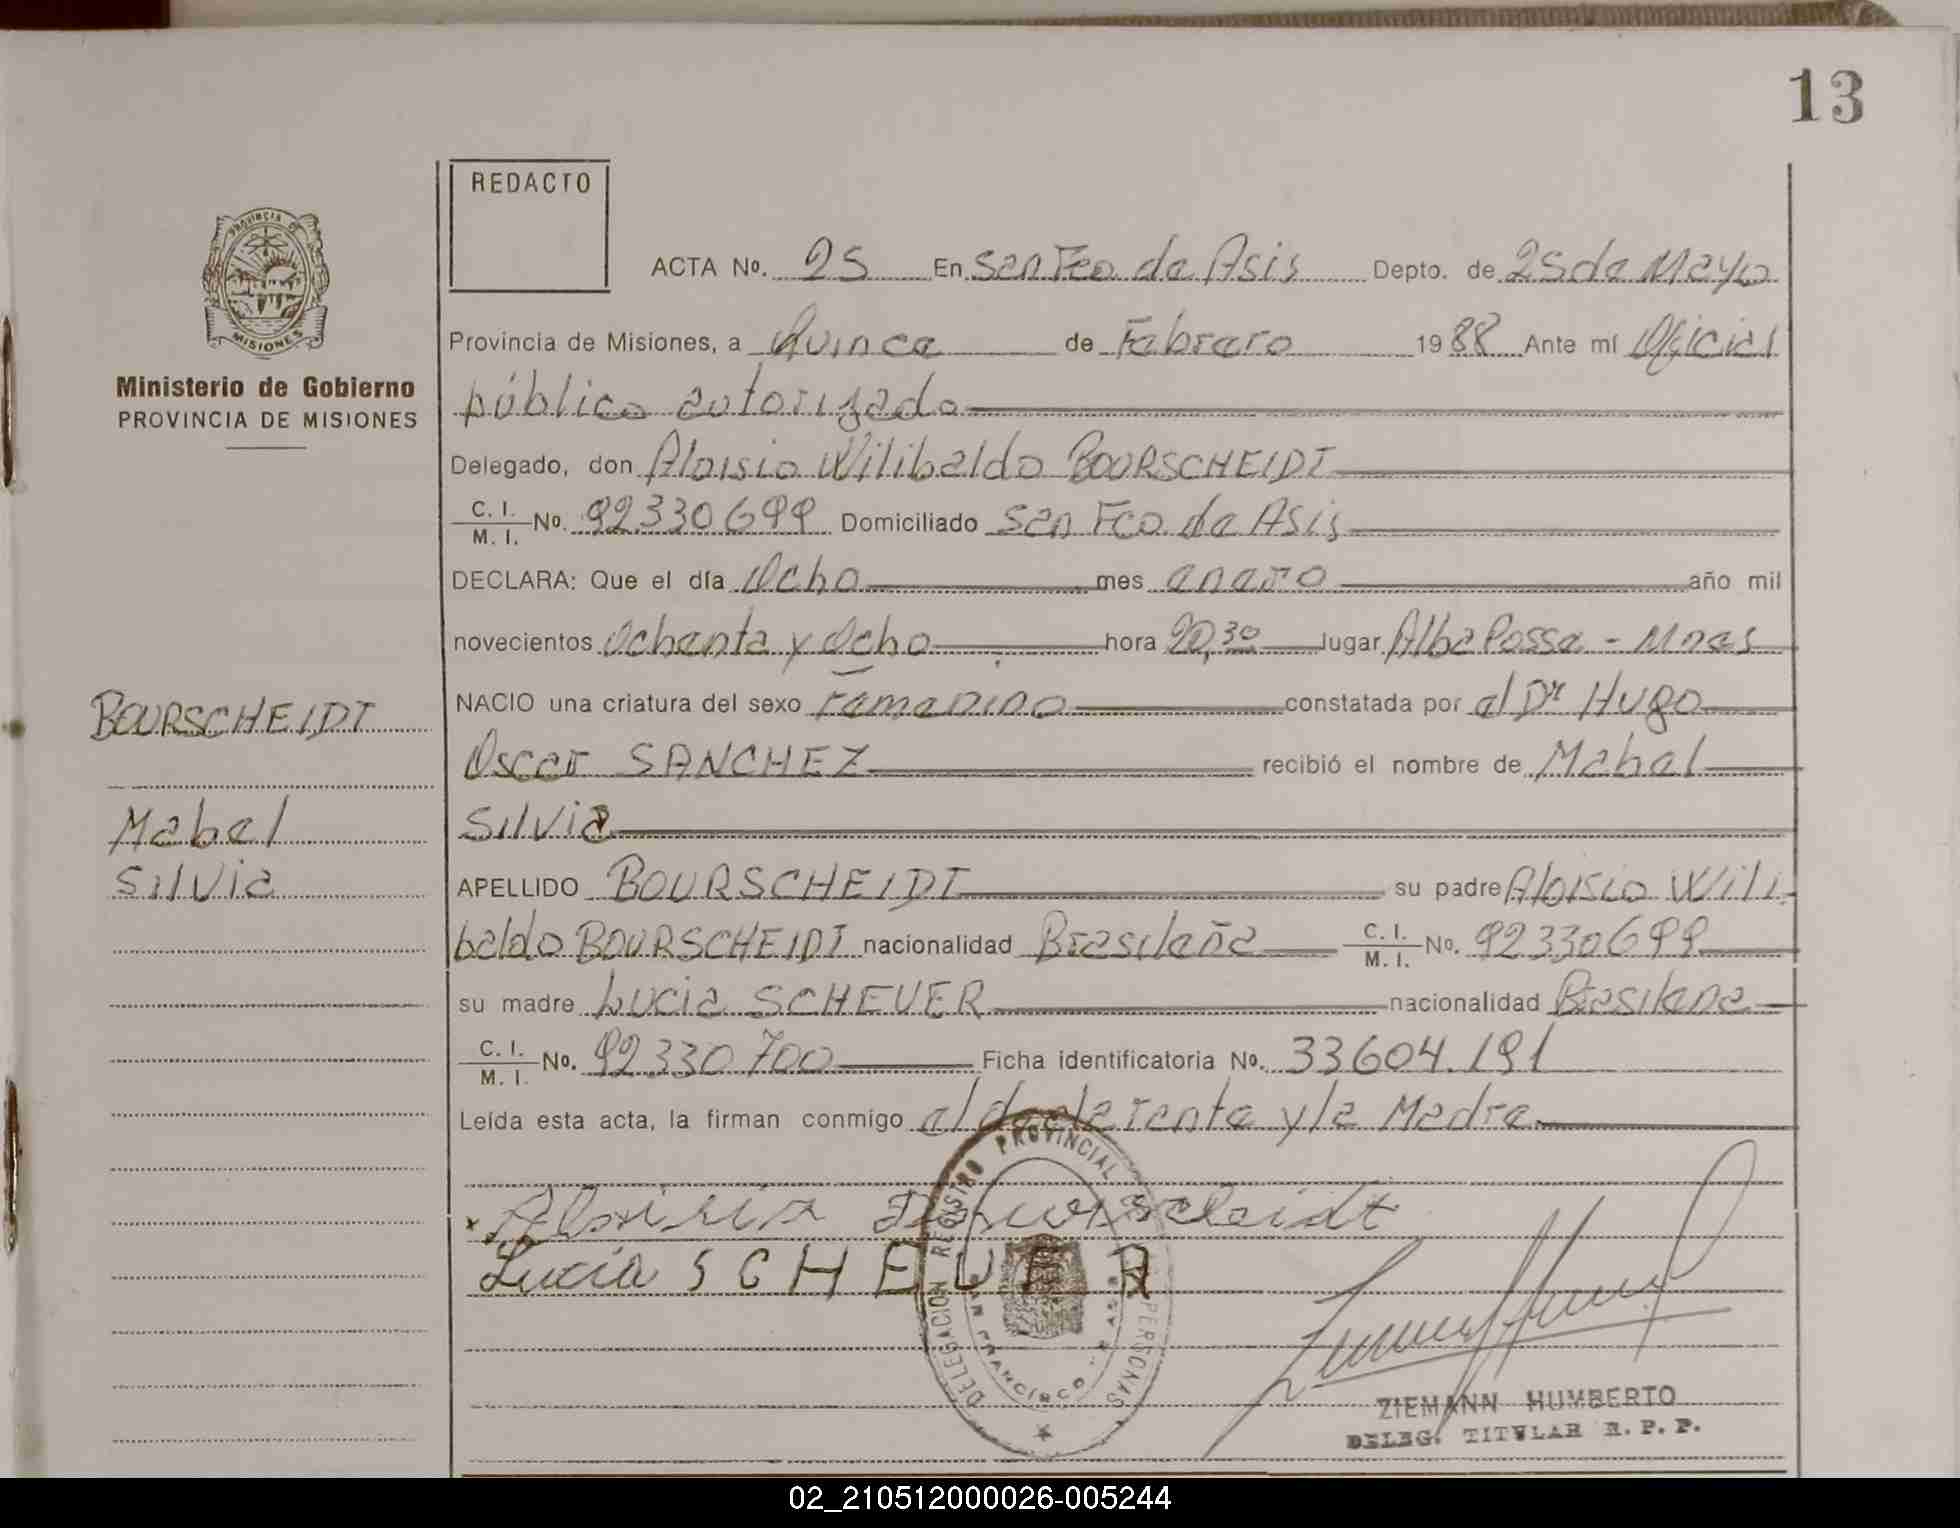 13
REDACTO
PROVINCIA DE
MISIONES
Ministerio de Gobierno
PROVINCIA DE MISIONES
ACTA No. 25 En San Fco de Asis Depto. de 25 de Mayo
Provincia de Misiones, a Quince de Febrero 1988 Ante mí Oficial
público autorizado
Delegado, don Aloisio Wilibaldo BOURSCHEIDT
C. I.
M. I. No. 92330699 Domiciliado San Fco. de Asis
DECLARA: Que el día Ocho mes enero año mil
novecientos Ochenta y Ocho hora 20,30 lugar Alba Posse - Mnes
NACIO una criatura del sexo Femenino constatada por el Dr Hugo
Oscar SANCHEZ recibió el nombre de Mabel
Silvia
APELLIDO BOURSCHEIDT su padre Aloisio Wili
baldo BOURSCHEIDT nacionalidad Brasileña C. I.
M. I. No. 92330699
su madre Lucia SCHEUER nacionalidad Brasilena
C. I.
M. I. No. 92330700 Ficha identificatoria No. 33604.191
Leída esta acta, la firman conmigo el declarente y la Madre
BOURSCHEIDT
Mabel
Silvia
x Bourscheidt
Lucia SCHEUER
DELEGACION REGISTRO PROVINCIAL PERSONAS
SAN FRANCISCO
ZIEMANN HUMBERTO
DELEG. TITULAR R. P. P.
02_210512000026-005244